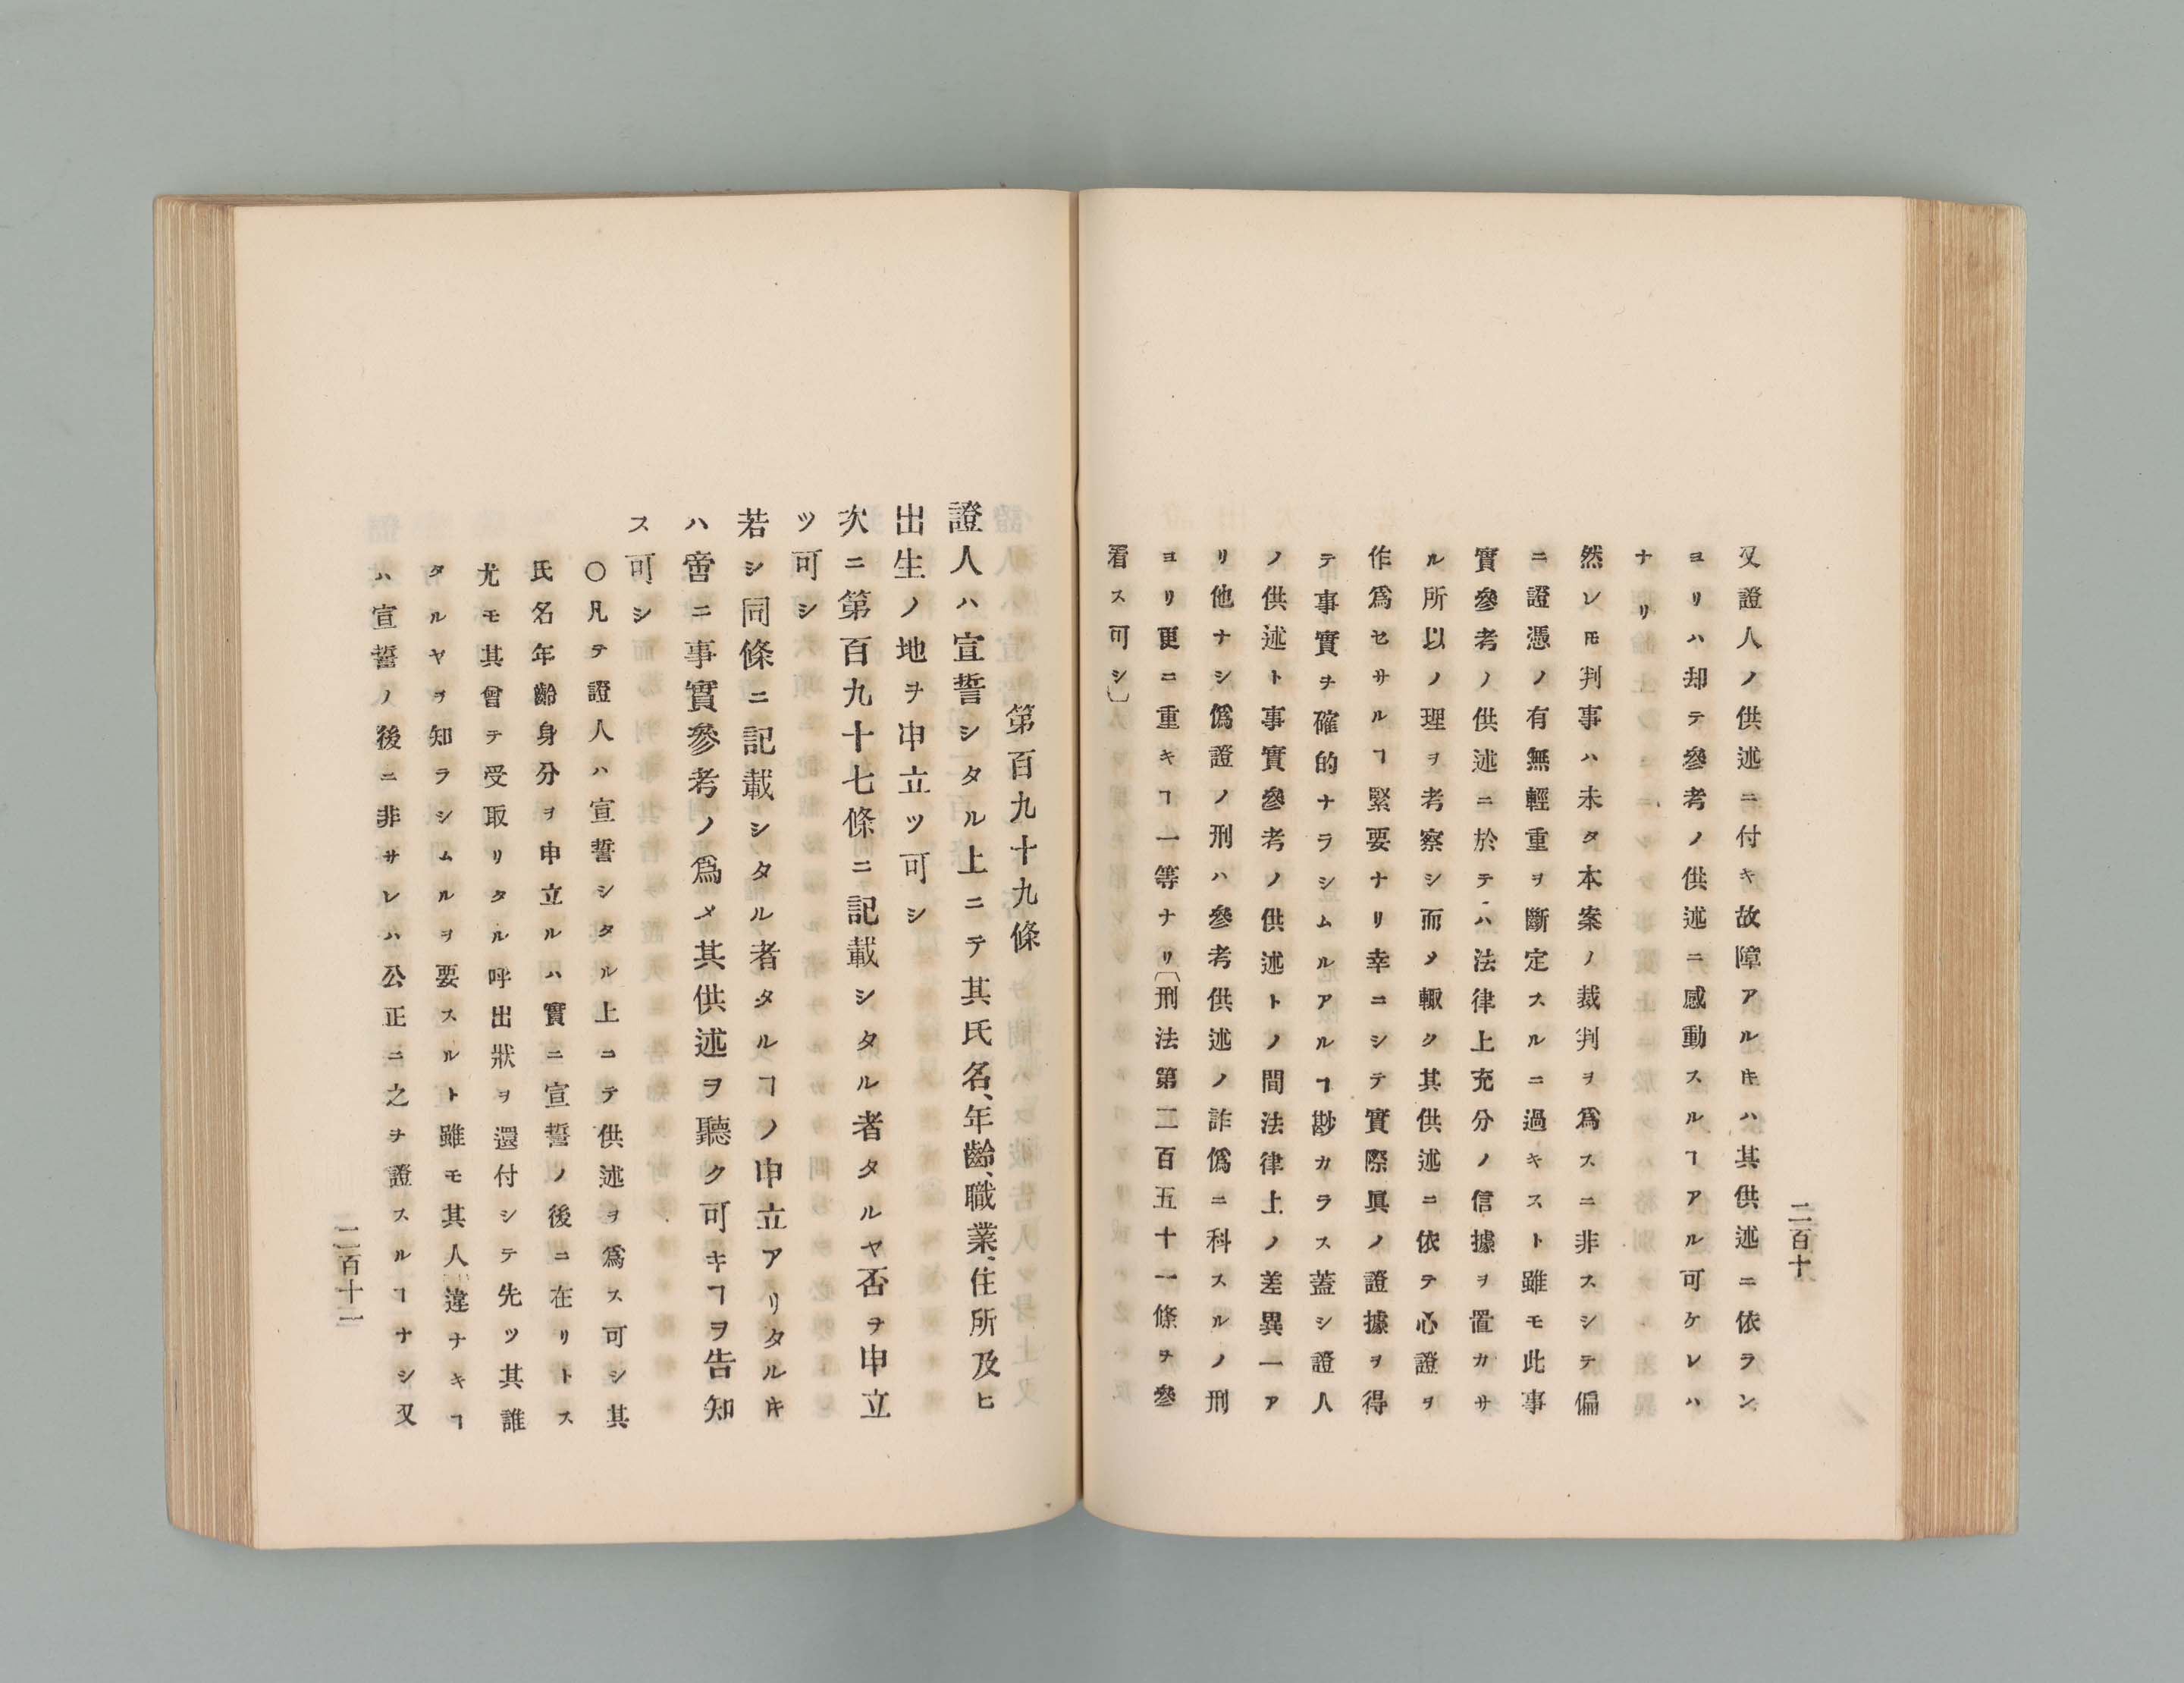 二百十
又證人ノ供述ニ付キ故障アルキハ其供述ニ依ラン
ヨリハ却テ參考ノ供述ニ感動スルヿアル可ケレハ
ナリ
然レㇳモ判事ハ未タ本案ノ裁判ヲ爲スニ非スシテ偏
ニ證憑ノ有無輕重ヲ斷定スルニ過キスト雖モ此事
實參考ノ供述ニ於テハ法律上充分ノ信據ヲ置カサ
ル所以ノ理ヲ考察シ而メ輙ク其供述ニ依テ心證ヲ
作爲セサルヿ緊要ナリ幸ニシテ實際眞ノ證據ヲ得
テ事實ヲ確的ナラシムルアルヿ尠カラス蓋シ證人
ノ供述ト事實參考ノ供述トノ間法律上ノ差異一ア
リ他ナシ僞證ノ刑ハ參考供述ノ詐僞ニ科スルノ刑
ヨリ更ニ重キヿ一等ナリ〔刑法第二百五十一條ヲ參
看ス可シ〕
第百九十九條
證人ハ宣誓シタル上ニテ其氏名、年齡、職業、住所及ヒ
出生ノ地ヲ申立ツ可シ
次ニ第百九十七條ニ記載シタル者タルヤ否ヲ申立
ツ可シ
若シ同條ニ記載シタル者タルヿノ申立アリタルキ
ハ啻ニ事實參考ノ爲メ其供述ヲ聽ク可キヿヲ告知
ス可シ
〇凡テ證人ハ宣誓シタル上ニテ供述ヲ爲ス可シ其
氏名年齡身分ヲ申立ルハ實ニ宣誓ノ後ニ在リトス
尤モ其曾テ受取リタル呼出狀ヲ還付シテ先ツ其誰
タルヤヲ知ラシムルヲ要スルト雖モ其人違ナキヿ
ハ宣誓ノ後ニ非サレハ公正ニ之ヲ證スルヿナシ又
二百十一